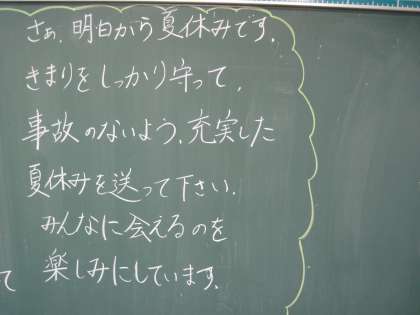 さぁ、明日から夏休みです。
きまりをしっかり守って、
事故のないよう、充実した
夏休みを送って下さい。
みんなに会えるのを
楽しみにしています。
て